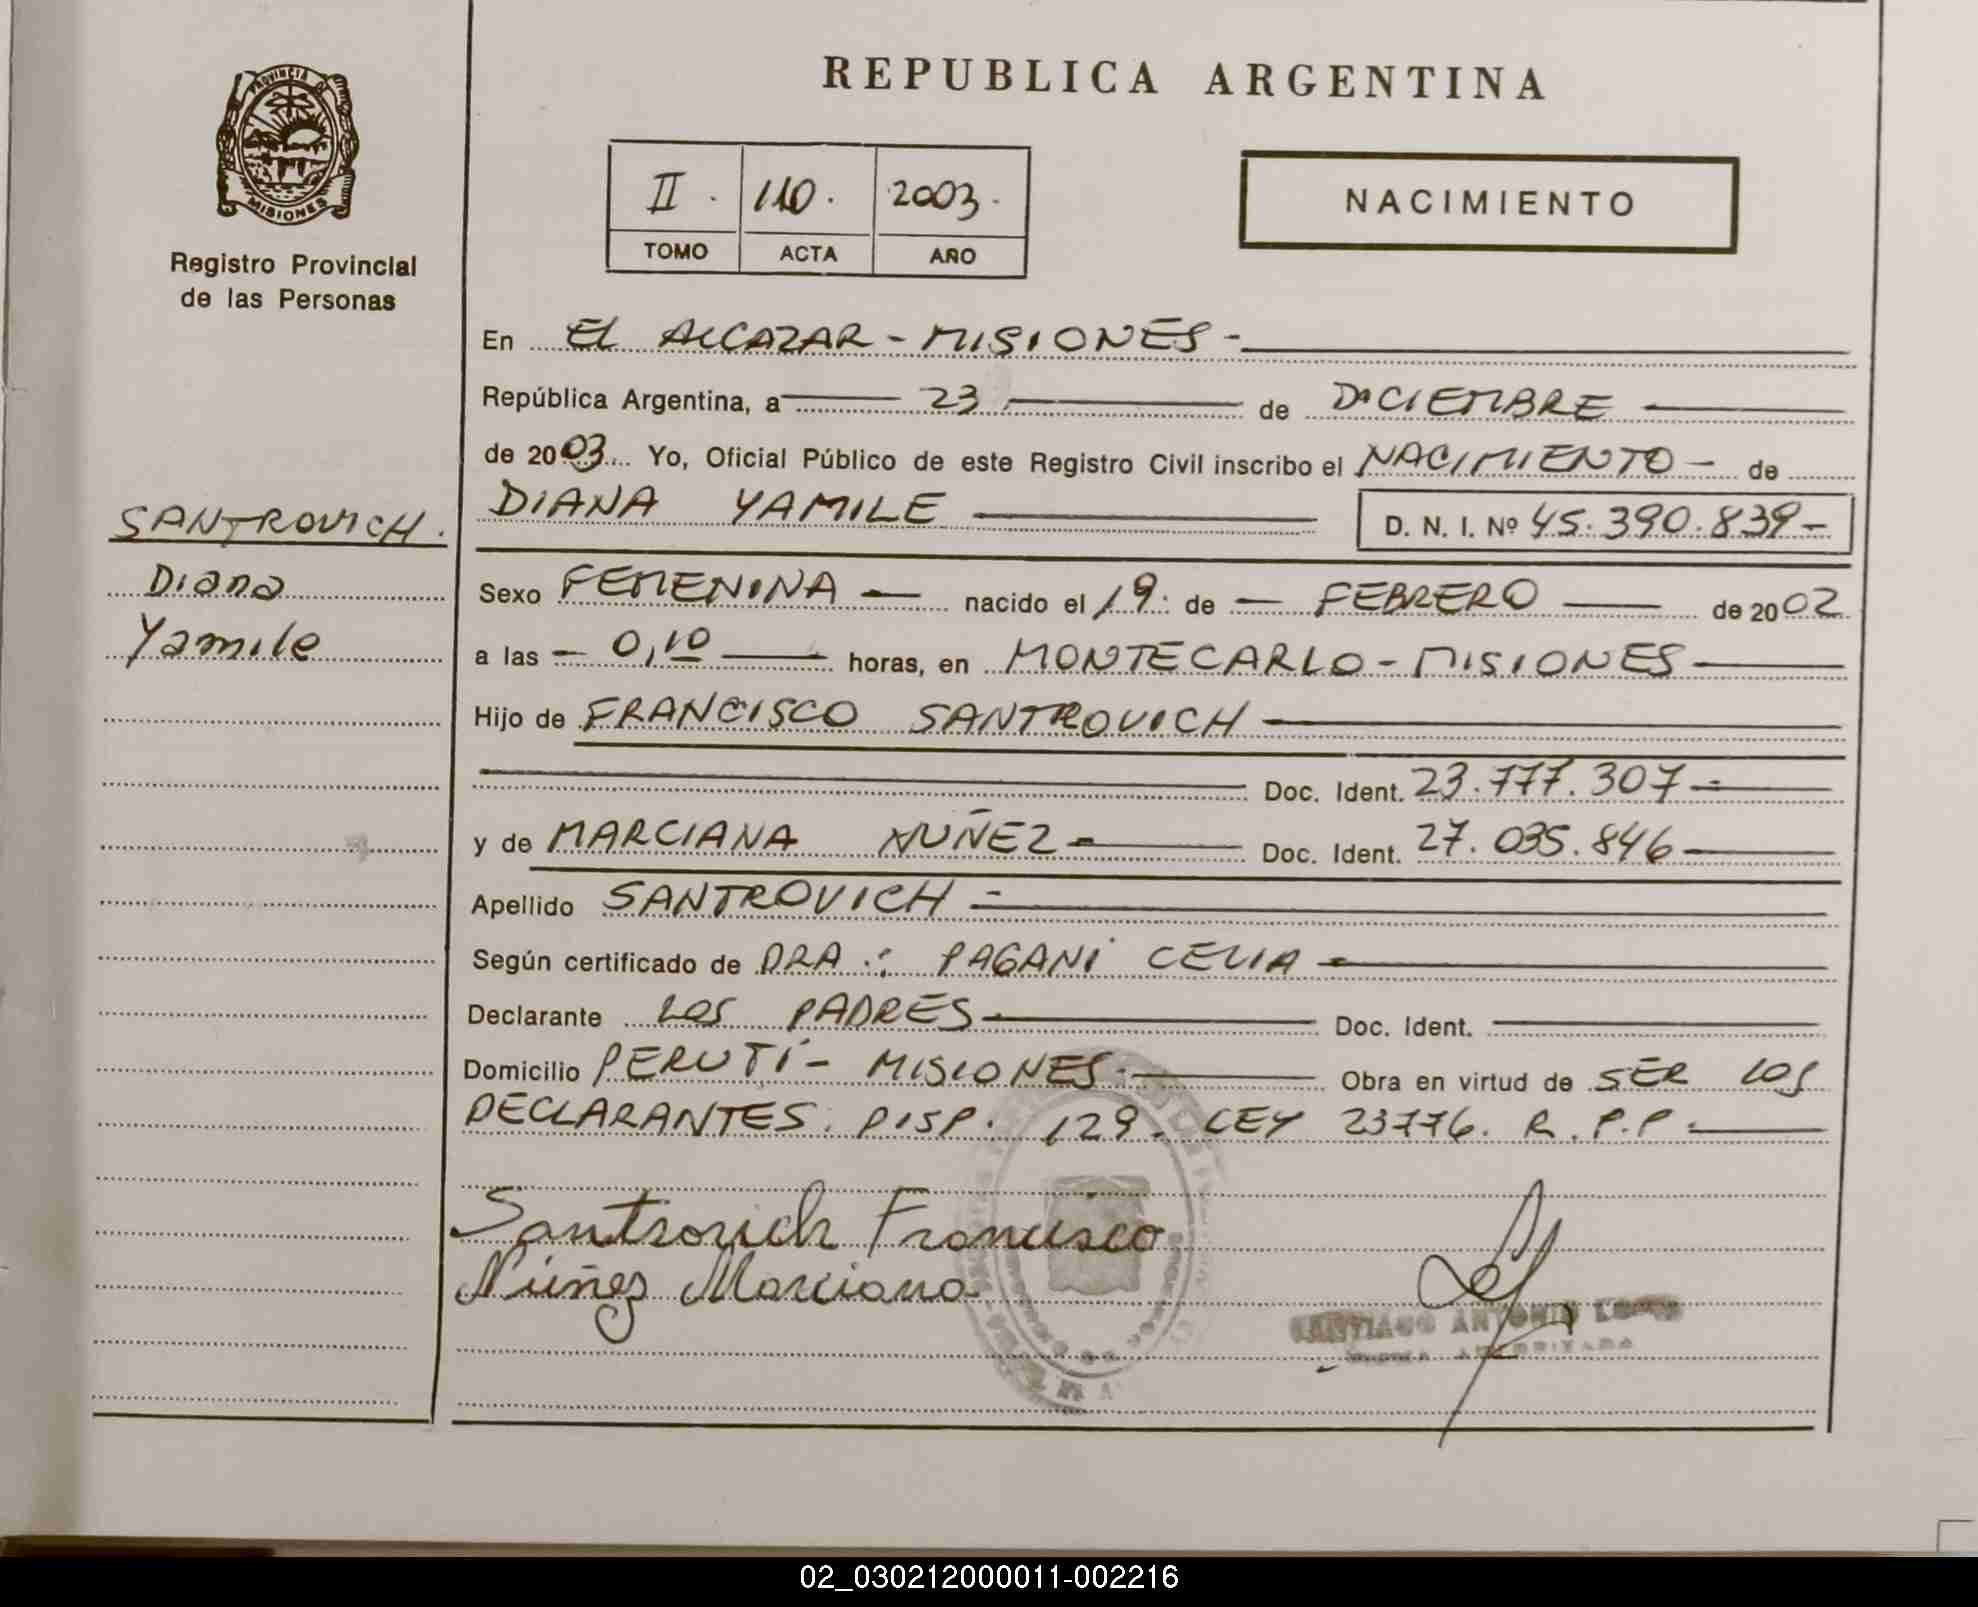 REPUBLICA ARGENTINA
PROVINCIA DE
MISIONES
Registro Provincial
de las Personas
II. 110. 2003.
TOMO ACTA AÑO
NACIMIENTO
En EL ALCAZAR - MISIONES -
República Argentina, a 23 de DICIEMBRE
de 2003 Yo, Oficial Público de este Registro Civil inscribo el NACIMIENTO - de
DIANA YAMILE D. N. I. Nº 45.390.839-
SANTROVICH.
Diana
Yamile
Sexo FEMENINA — nacido el 19 de — FEBRERO — de 2002
a las — 0,10 — horas, en MONTECARLO - MISIONES —
Hijo de FRANCISCO SANTROVICH —
Doc. Ident. 23.777.307 —
y de MARCIANA NUÑEZ — Doc. Ident. 27.035.846 —
Apellido SANTROVICH -
Según certificado de DRA.: PAGANI CELIA —
Declarante LOS PADRES — Doc. Ident. —
Domicilio PERUTÍ - MISIONES. — Obra en virtud de SER LOS
DECLARANTES. DISP. 129. LEY 23776. R.P.P. —
Santrovich Francisco
Núñez Marciana
SANTIAGO ANTONIO
02_030212000011-002216